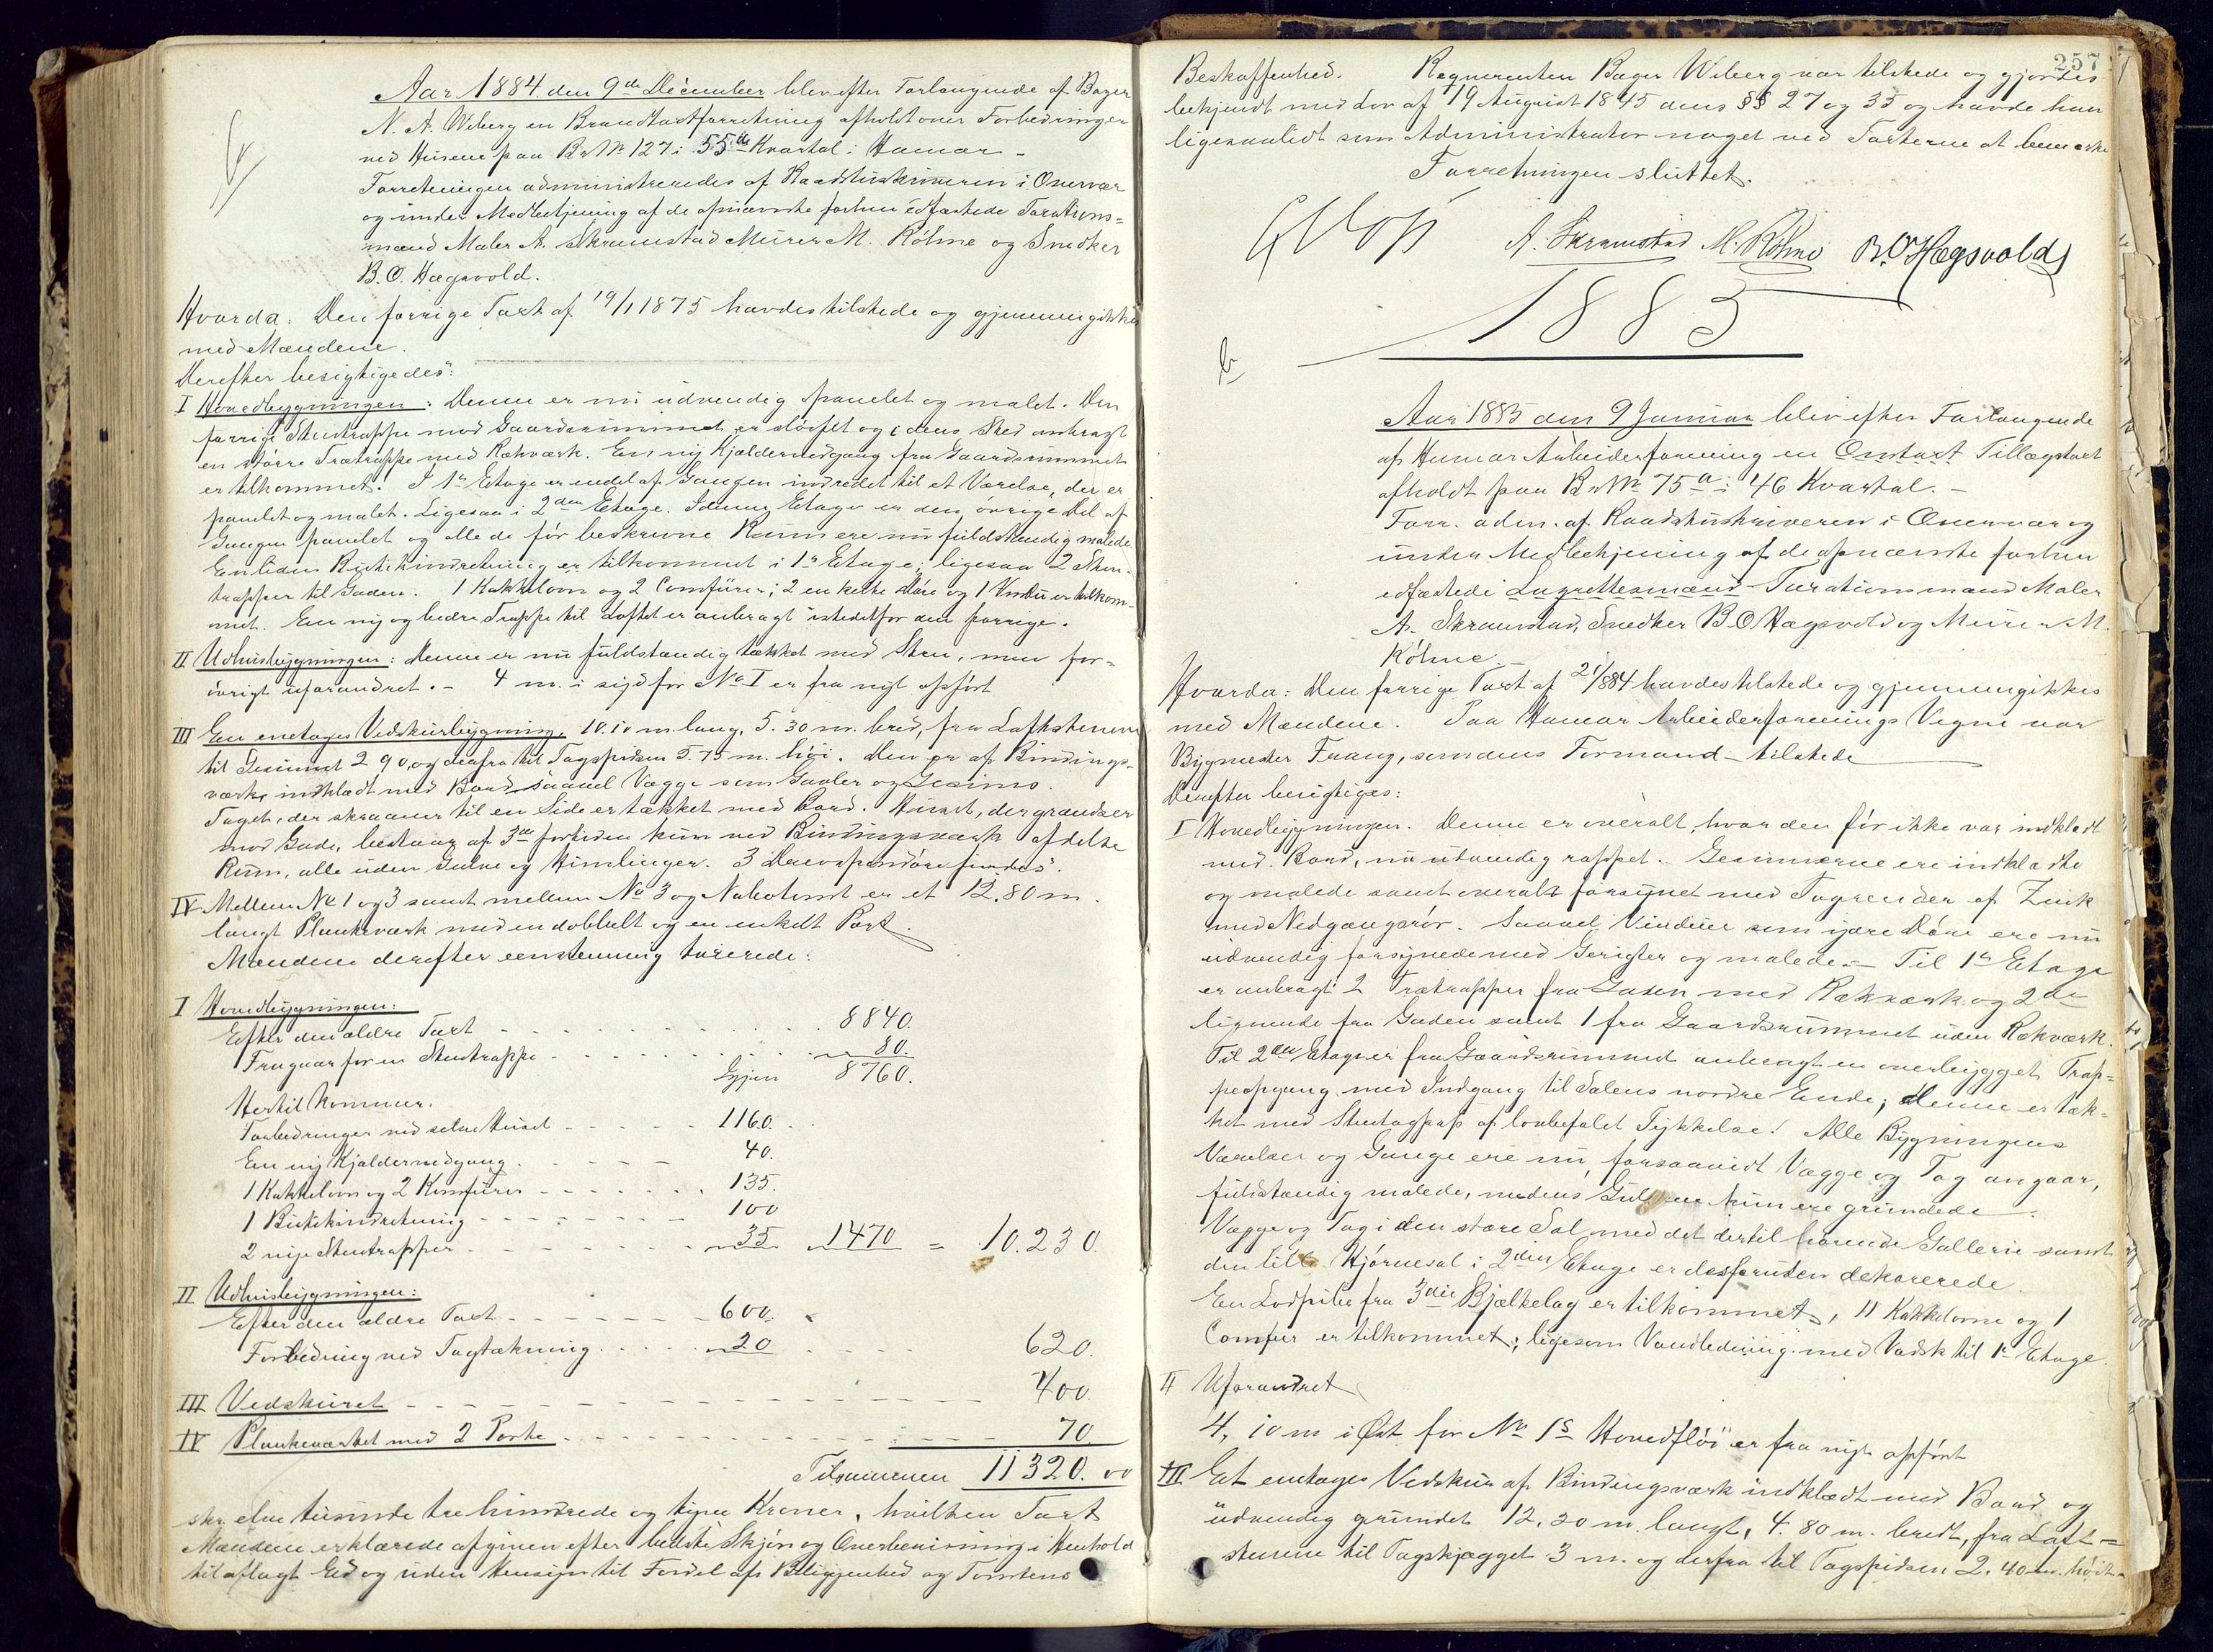 Aar 1884 den 9de December blev efter Forlangende af Bager
N. A. Wiberg en Brandtaxtforretning afholdt over Forbedringer
ved Husene paa Br No 127 i 55de Kvartal i Hamar –
Forretningen administreredes af Raadstuskriveren i Overvær
og under Medbetjening af de opnævnte forhen edfæstede Taxations=
mænd Maler A. Skramstad Murer M. Røhne og Snedker
B. O. Hægsvold.
Hvorda: Den forrige Taxt af 19/1 1875 havdes tilstede og gjennemgikkes
med Mændene.
Derefter besigtigedes:
I Hovedbygningen: Denne er nu udvendig panelet og malet. Den
forrige Stentrappe mod Gaardsrummet er sløifet og i dens Sted anbragt
en større Trætrappe med Rækværk. En ny Kjældernedgang fra Gaardsrummet
er tilkommet. I 1ste Etage er en del af Gangen indredet til et Værelse, der er
panelet og malet. Ligesaa i 2den Etage. I denne Etage er den øvrige Del af
Gangen panelet og alle de før beskrevne Rum ere nu fuldstændig malede.
En liden Butikindretning er tilkommet i 1ste Etage; ligesaa 2 Sten-
trapper til Gaden. 1 Kakkelovn og 2 Comfurer; 2 enkelte Døre og 1 Vindu er tilkom-
met. En ny og bedre Trappe til Loftet er anbragt istedetfor den forrige.
II Udhusbygningen: Denne er nu fuldstændig tækket med Sten, men for=
øvrigt uforandret. – 4 m. i syd for No I er fra nyt opført
III En enetages Vedskurbygning, 10.10 m. lang, 5.30 m. bred, fra Loftstenene
til Gesimset 2 90, og derfra til Tagspidsen 5.75 m. høi. Den er af Bindings-
værk, indklædt med Bord saavel Vægge som Gavler og Gesims.
Taget, der skraaner til en Side er tækket med Bord. Huset, der grændser
mod Gade, bestaar af 3de forhiden kun ved Bindingsværk afdelte
Rum, alle uden Gulve og Himlinger. 3 Dører findes.
IV Mellem No 1 og 3 samt mellem No 3 og Nabotomt er et 12.80 m.
langt Plankeværk med en dobbelt og en enkelt Port.
Mændene derefter eenstemmig taxerede:
I Hovedbygningen:
Efter den ældre Taxt 8840.
Fragaar for en Stentrappe 80.
Igjen 8760.
Hertil kommer.
Forbedringer ved selve Huset 1160.
En ny Kjældernedgang 40.
1 Kakkelovn og 2 Komfurer 135.
1 Butikindretning 100
2 nye Stentrapper 35 1470 = 10.230.
II Udhusbygningen:
Efter den ældre Taxt 600.
Forbedring ved Tagtækning 20 620.
III Vedskuret 400.
IV Plankeværket med 2 Porte 70.
Tilsammen 11320. 00
skr. elve tusinde tre hundrede og tyve Kroner, hvilken Taxt
Mændene erklærede afgiven efter bedste Skjøn og Overbevisning i Henhold
til aflagt Ed og uden Hensyn til Fordel af Beliggenhed og Tomtens
257
Beskaffenhed. Reqvirenten Bager Wiberg var tilstede og gjordes
bekjendt med Lov af 19 August 1845 dens §§ 27 og 35 og havde han
ligesaalidt som Administrator noget ved Taxterne at bemærke
Forretningen sluttet.
A. Skramstad M. Røhne B. O Hægsvold
1885
Aar 1885 den 9 Januar blev efter Forlangende
af Hamar Arbeiderforening en Omtaxt Tillægstaxt
afholdt paa Br No 75 a i 46 Kvartal. –
Forr. adm. af Raadstuskriveren i Overvær og
under Medbetjening af de opnævnte forhen
edfæstede Lagrettesmænd Taxationsmænd Maler
A. Skramstad, Snedker B. O Hægsvold og Murer M.
Røhne. –
Hvorda: Den forrige Taxt af 21/1 884 havdes tilstede og gjennemgikkes
med Mændene. Paa Hamar Arbeiderforenings Vegne var
Bygmester Faang, som dens Formand – tilstede
Derefter besigtiges:
I Hovedbygningen. Denne er overalt, hvor den før ikke var indklædt
med Bord, nu utvendig rappet. Gesimserne ere indklædte
og malede samt overalt forsynet med Tagrender af Zink
med Nedgangsrør. Saavel Vinduer som ydre Døre ere nu
udvendig forsynede med Gerigter og malede. – Til 1ste Etage
er anbragt 2 Trætrapper fra Gaden med Rækværk og 2de
lignende fra Gaden samt 1 fra Gaardsrummet uden Rækværk.
Til 2den Etage er fra Gaardsrummet anbragt en overbygget Trap=
peopgang med Indgang til Salens nordre Ende; denne er tæk=
ket med Stentagpap af lovbefalet Tykkelse. Alle Bygningens
Værelser og Gange ere nu, forsaavidt Vægge og Tag angaar,
fuldstændig malede, medens Gulvene kun ere grundede.
Vægge og Tag i den store Sal med det dertil hørende Gallerie samt
den lille Hjørnesal i 2den Etage er desforuden dekorerede.
En Lodpibe fra 3die Bjælkelag er tilkommet, 11 Kakkelovne og 1
Comfur er tilkommet; ligesom Vandledning med Vadsk til 1ste Etage.
II Uforandret
4,10 m i Øst for No 1s Hovedfløi er fra nyt opført
III Et entages Vedskur af Bindingsværk indklædt med Bord og
udvendig grundet 12.20 m. langt, 4.80 m. bredt, fra Loft=
stenene til Tagskjægget 3 m. og derfra til Tagspidsen 2.40 m. høit.